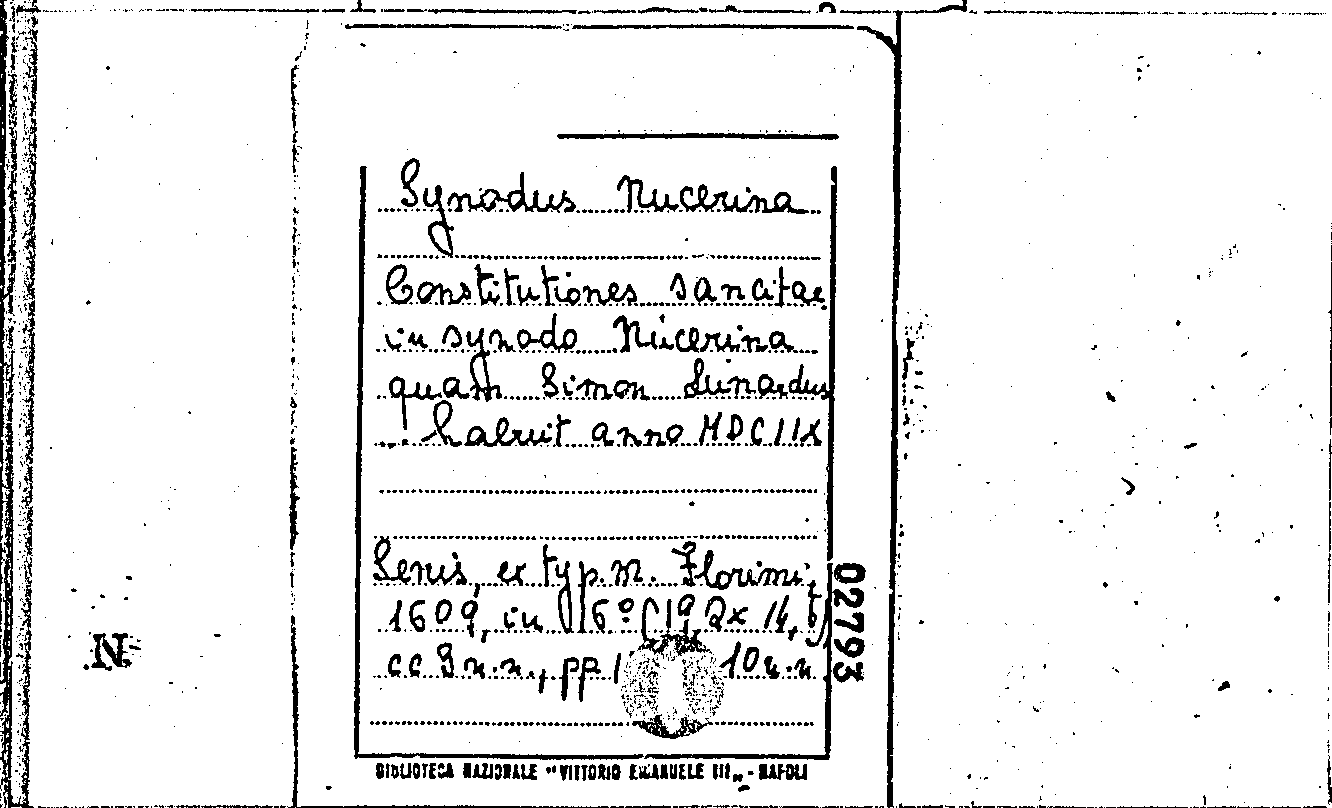 Synodus Nucerina
Constitutiones sancitae
in synodo Nucerina
quam Simon Lunadus
... habuit anno MDCIIX
Senis, ex typ. M. Florimi,
1609, in 16° (19,2x14,5)
cc 3 n.n., pp 1 10 n.n.
02793
N
BIBLIOTECA NAZIONALE "VITTORIO EMANUELE III" - NAPOLI